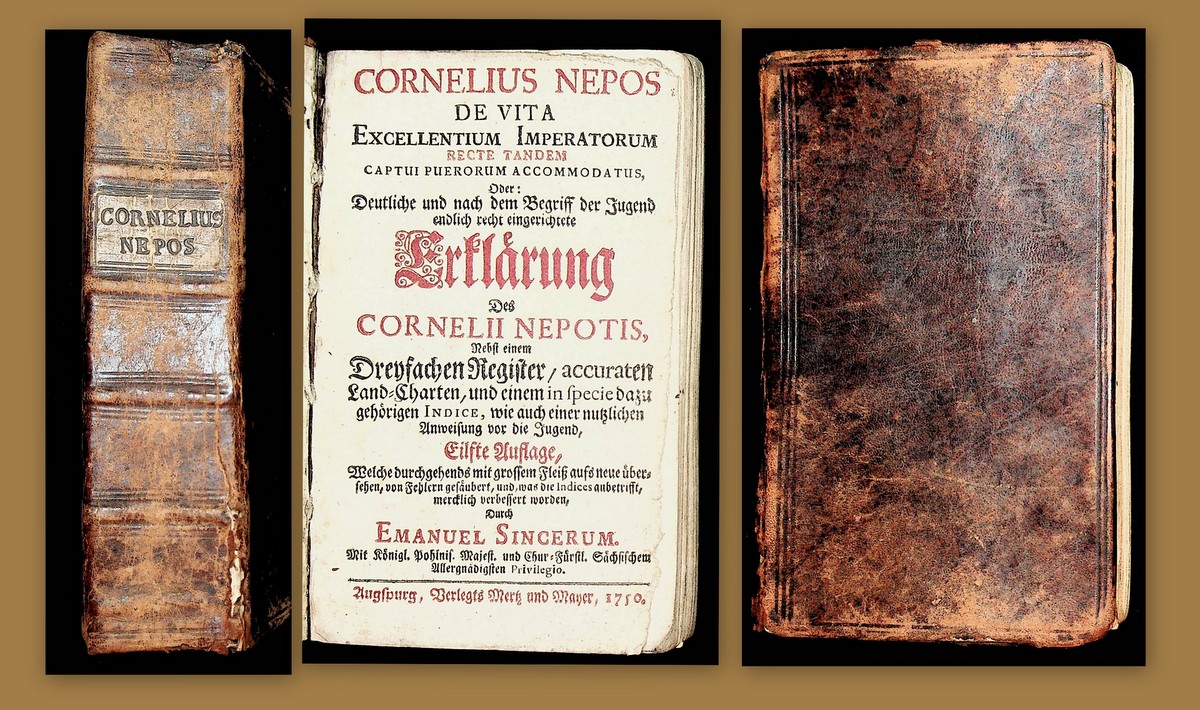 CORNELIUS
NEPOS
CORNELIUS NEPOS
DE VITA
EXCELLENTIUM IMPERATORUM
RECTE TANDEM
CAPTUI PUERORUM ACCOMMODATUS,
Oder:
Deutliche und nach dem Begriff der Jugend
endlich recht eingerichtete
Erklärung
Des
CORNELII NEPOTIS,
Nebst einem
Dreyfachen Register / accuraten
Land-Charten, und einem in specie dazu
gehörigen INDICE, wie auch einer nutzlichen
Anweisung vor die Jugend,
Eilfte Auflage,
Welche durchgehends mit grossem Fleiß aufs neue über-
sehen, von Fehlern gesäubert, und, was die Indices anbetrifft,
mercklich verbessert worden,
Durch
EMANUEL SINCERUM.
Mit Königl. Pohlnis. Majest. und Chur-Fürstl. Sächsischem
Allergnädigsten Privilegio.
Augspurg, Verlegts Mertz und Mayer, 1750.